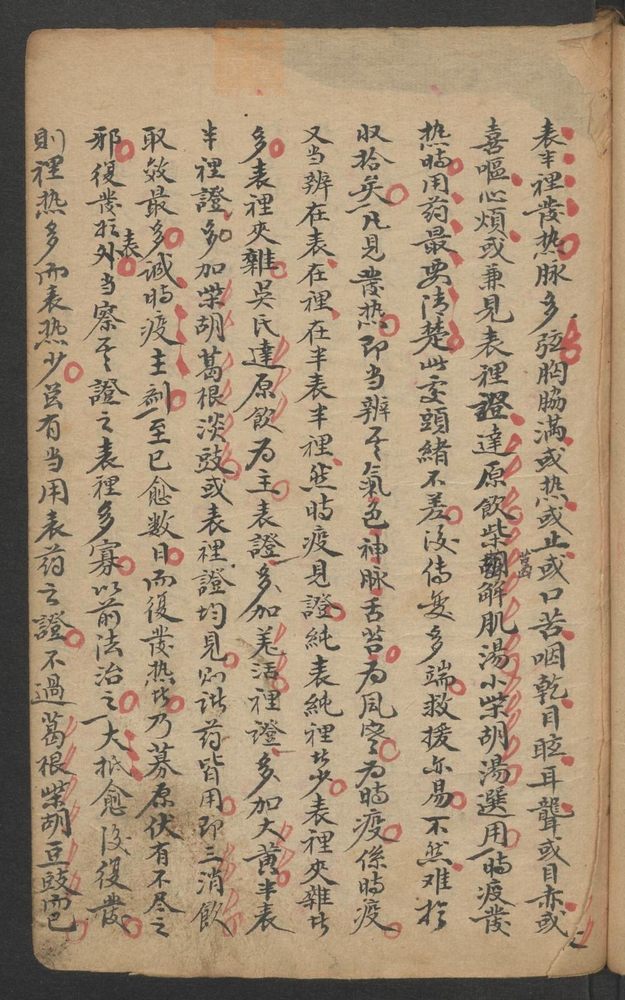 表半裡發热脉多弦胸脇滿或热或止或口苦咽乾目眩耳聾或目赤或
喜嘔心煩或兼見表裡證達原飲柴葛解肌湯小柴胡湯選用一時疫發
热時用药最要清楚此處頭緒不差後傳变多端救援亦易不然难於
収拾矣凡見發热即当辨其氣色神脉舌苔为風寒为時疫係時疫
又当辨在表在裡在半表半裡然時疫見證純表純裡者少表裡夾雜者
多表裡夾雜吳氏達原飲为主表證多加羌活裡證多加大黄半表
半裡證多加柴胡葛根淡豉或表裡證均見則諸药皆用即三消飲
取效最多誠時疫主劑一至已愈数日而復發热者乃募原伏有不尽之
邪復發於外当察其表證之表裡多寡以前法治之大抵愈後復發
則裡热多而表热少茍有当用表药之證不過葛根柴胡豆豉而已